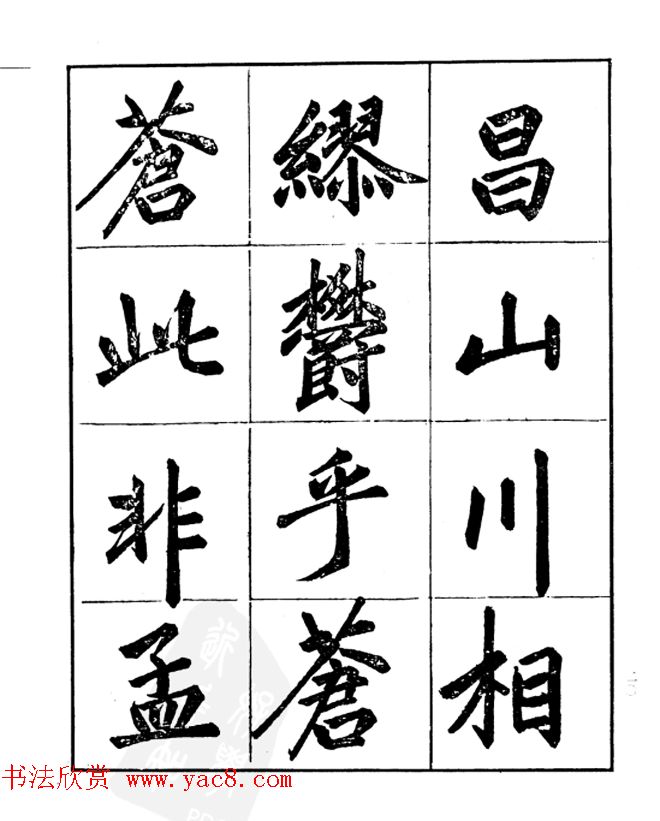 昌山川相
繆鬱乎蒼
蒼此非孟
书法欣赏 www.yac8.com